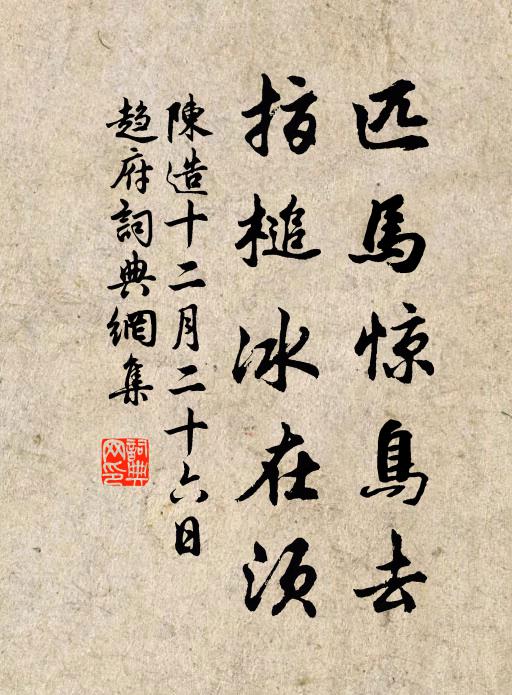 匹馬惊鳥去
指槌冰在须
陳造十二月二十六日
趙府詞典網集
詞典網印